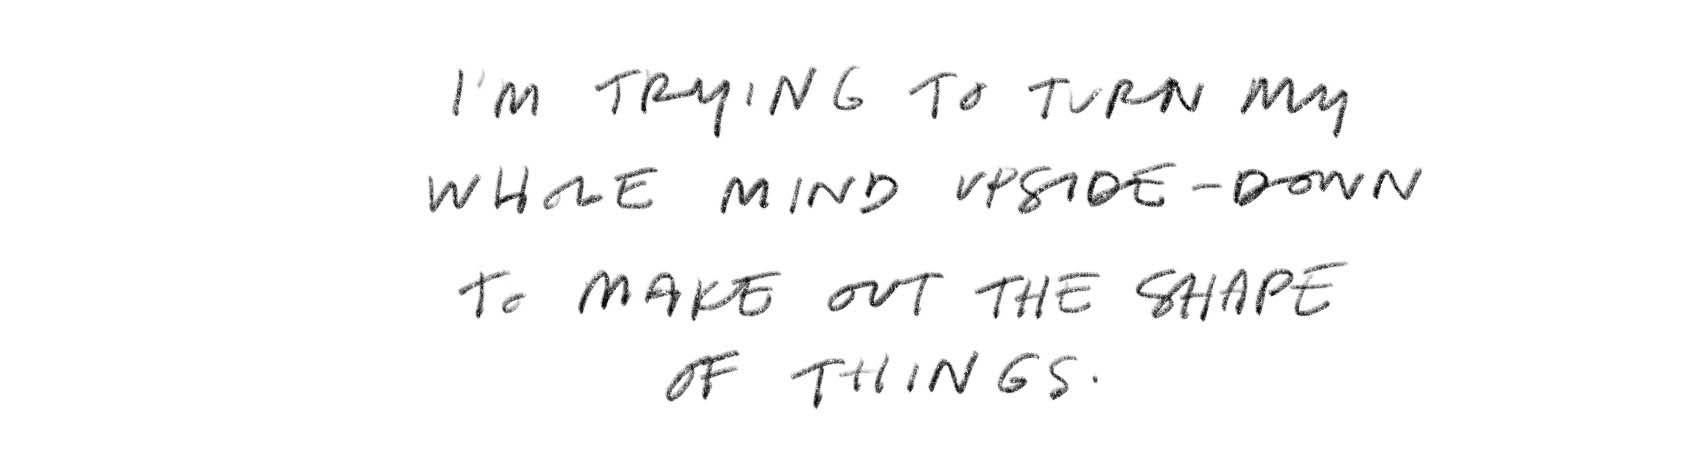 I'M TRYING TO TURN MY
WHOLE MIND UPSIDE-DOWN
TO MAKE OUT THE SHAPE
OF THINGS.